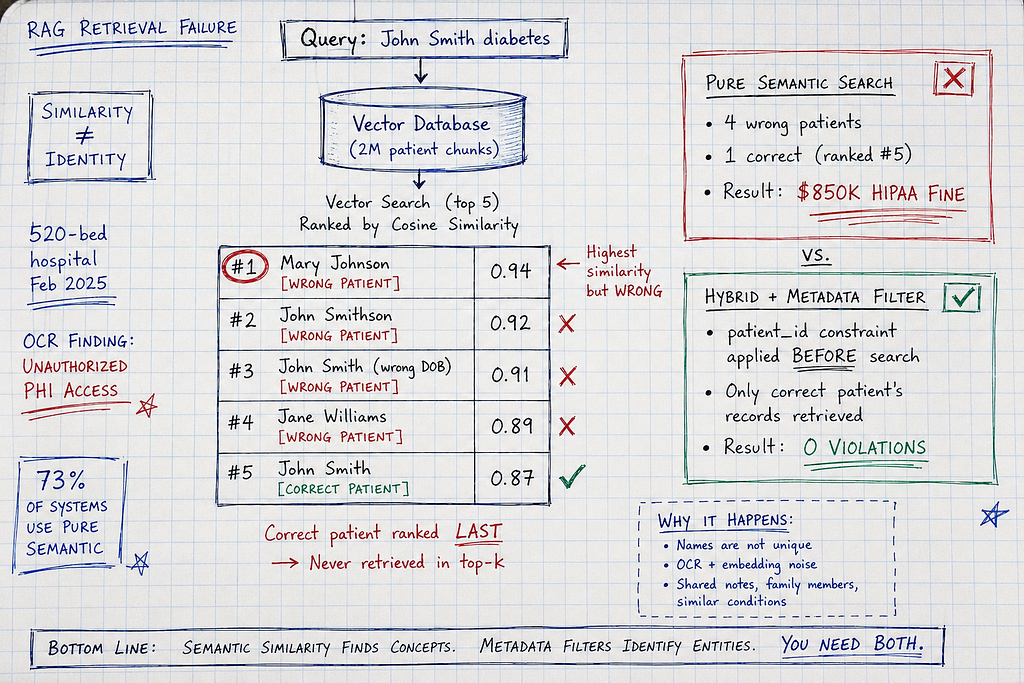 RAG RETRIEVAL FAILURE
Query: John Smith diabetes
SIMILARITY
≠
IDENTITY
Vector Database
(2M patient chunks)
Vector Search (top 5)
Ranked by Cosine Similarity
520-bed
hospital
Feb 2025
OCR FINDING:
UNAUTHORIZED
PHI ACCESS
73%
OF SYSTEMS
USE PURE
SEMANTIC
#1 Mary Johnson 0.94
[WRONG PATIENT]
#2 John Smithson 0.92
[WRONG PATIENT]
#3 John Smith (wrong DOB) 0.91
[WRONG PATIENT]
#4 Jane Williams 0.89
[WRONG PATIENT]
#5 John Smith 0.87
[CORRECT PATIENT]
← Highest
similarity
but WRONG
✗
✗
✗
✓
Correct patient ranked LAST
→ Never retrieved in top-k
PURE SEMANTIC SEARCH ✗
• 4 wrong patients
• 1 correct (ranked #5)
• Result: $850K HIPAA FINE
VS.
HYBRID + METADATA FILTER ✓
• patient_id constraint
applied BEFORE search
• Only correct patient's
records retrieved
• Result: 0 VIOLATIONS
WHY IT HAPPENS:
• Names are not unique
• OCR + embedding noise
• Shared notes, family members,
similar conditions
BOTTOM LINE: SEMANTIC SIMILARITY FINDS CONCEPTS. METADATA FILTERS IDENTIFY ENTITIES. YOU NEED BOTH.